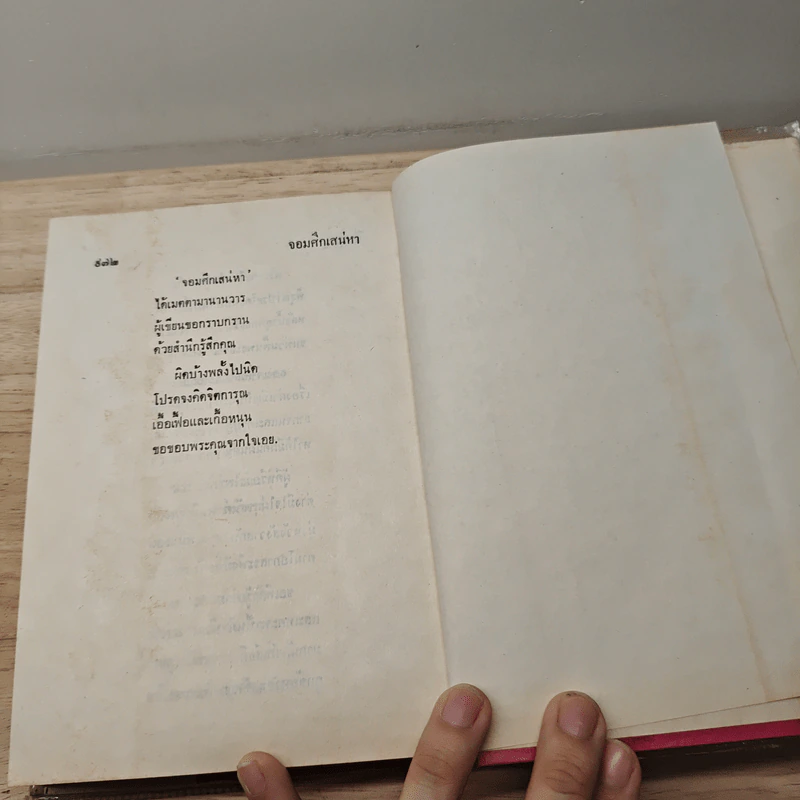 ๕๗๒
จอมศึกเสน่หา
‘จอมศึกเสน่หา’
ได้เมตตามานานวาร
ผู้เขียนขอกราบกราน
ด้วยสำนึกรู้สึกคุณ
ผิดบ้างพลั้งไปนิด
โปรดจงคิดจิตการุณ
เอื้อเฟื้อและเกื้อหนุน
ขอขอบพระคุณจากใจเอย.